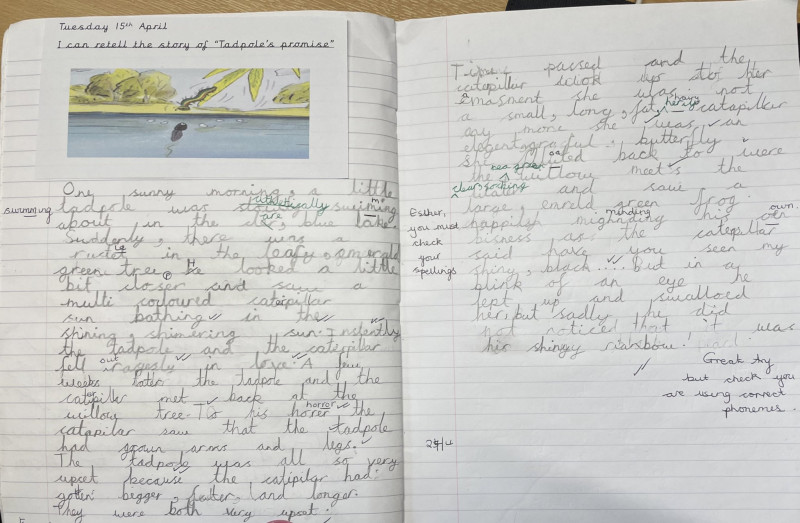 Tuesday 15th April
I can retell the story of "Tadpole's promise"
One sunny morning, a little
tadpole was swimming
athletically
swimming
about in the blue lake.
Suddenly, there was a
rustel in the leafy, emerald
green tree. He looked a little
bit closer and saw a
multi coloured caterpillar
sun bathing in the
shining, shimering sun. Instently
the tadpole and the caterpillar
fell in love. A few
out
weeks later the tadpole and the
catipiller met back at the
willow tree. To his horrer the
horror
catapilar saw that the tadpole
had grown arms and legs.
The tadpole was all so very
upcet because the catipilar had
gotten bigger, fatter, and longer.
They were both very upcet.
Time passed and the
catapillar up to her
amasment she was not
a small, long, fat, catapillar
hairy
any more she was an
elegent, graceful, butterfly.
She back to were
the willow meet's the
sea green
clear, sparkling
and saw a
large, emreld green frog.
happily his own
minding
own.
bisness as the catepillar
said have you seen my
shiny, black.... But in a
blink of an eye he
lept up and swallod
her, but sadly he did
not noticed that it was
his shiney rainbow!
Esther,
you must
check
your
spellings
Great try
but check you
are using correct
phonemes.
24/4